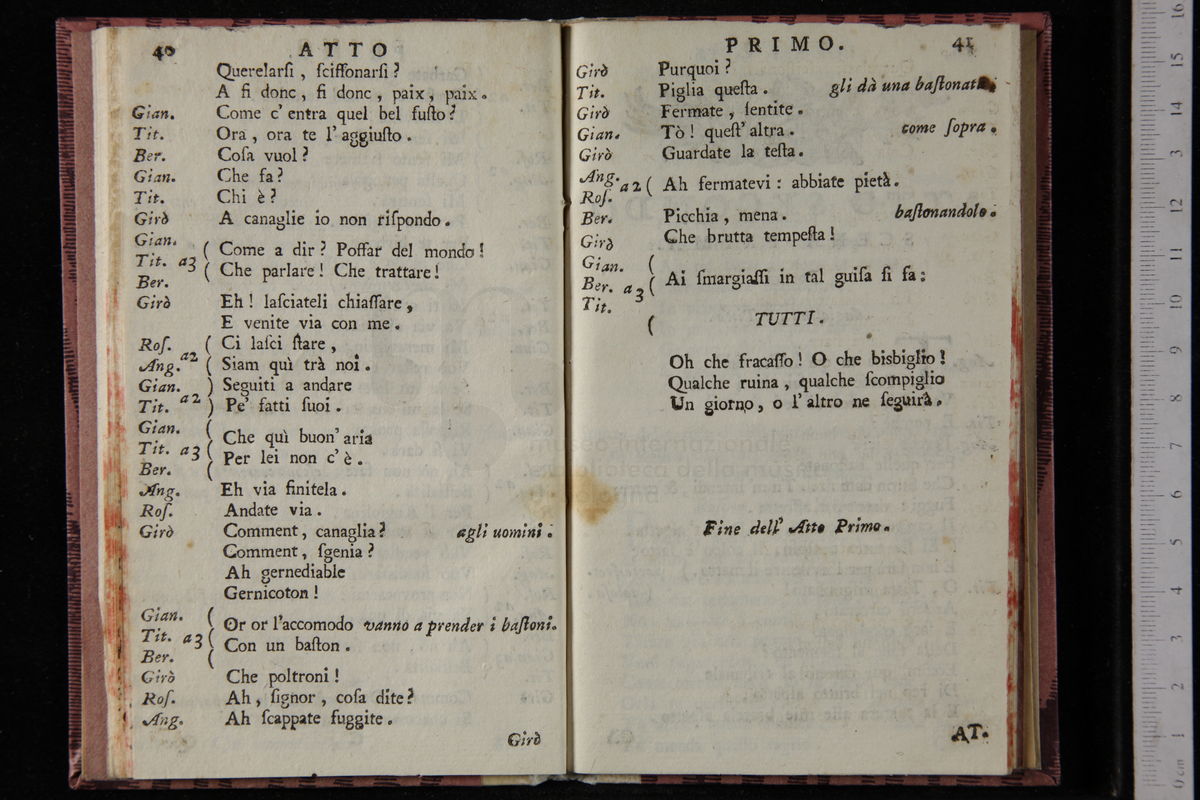 40 ATTO
Querelarſi , ſciſſonarſi ?
A fi donc , fi donc , paix , paix .
Gian. Come c' entra quel bel fuſto ?
Tit. Ora , ora te l' aggiuſto .
Ber. Coſa vuol ?
Gian. Che fa ?
Tit. Chi è ?
Girò A canaglie io non riſpondo .
Gian.
Tit. a3 ( Come a dir ? Poſſar del mondo !
Ber. ( Che parlare ! Che trattare !
Girò Eh ! laſciateli chiaſſare ,
E venite via con me .
Roſ. ( Ci laſci ſtare ,
Ang. a2 ( Siam quì trà noi .
Gian. ) Seguiti a andare
Tit. a2 ) Pe' fatti ſuoi .
Gian. (
Tit. a3 ( Che quì buon' aria
Ber. ( Per lei non c' è .
Ang. Eh via finitela .
Roſ. Andate via .
Girò Comment , canaglia ? agli uomini .
Comment , ſgenia ?
Ah gernediable
Gernicoton !
Gian. (
Tit. a3 ( Or or l'accomodo vanno a prender i baſtoni.
Ber. ( Con un baſton .
Girò Che poltroni !
Roſ. Ah , ſignor , coſa dite ?
Ang. Ah ſcappate fuggite .
Girò
PRIMO. 41
Girò Purquoi ?
Tit. Piglia queſta . gli dà una baſtonata.
Girò Fermate , ſentite .
Gian. Tò ! queſt' altra . come ſopra .
Girò Guardate la teſta .
Ang. a2 ( Ah fermatevi : abbiate pietà .
Roſ.
Ber. Picchia , mena . baſtonandolo .
Girò Che brutta tempeſta !
Gian. (
Ber. a3 ( Ai ſmargiaſſi in tal guiſa ſi fa :
Tit.
( TUTTI .
Oh che fracaſſo ! O che bisbiglio !
Qualche ruina , qualche ſcompiglio
Un giorno , o l' altro ne ſeguirà .
museo internazionale
e biblioteca della musica
di bologna
Fine dell' Atto Primo .
AT.